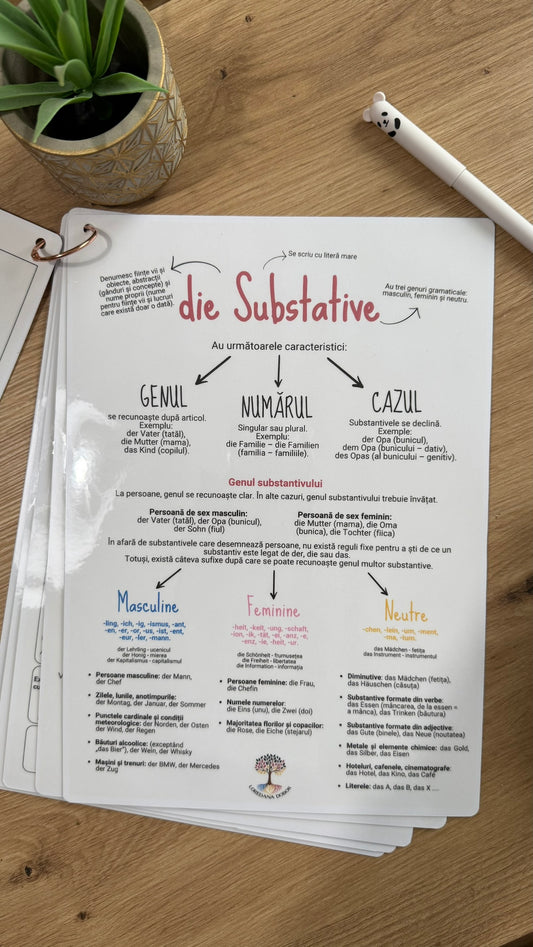 Se scriu cu literă mare
Denumesc ființe vii și
obiecte, abstracții
(gânduri și concepte) și
nume proprii (nume
pentru ființe vii și lucruri
care există doar o dată).
die Substative
Au trei genuri gramaticale:
masculin, feminin și neutru.
Au următoarele caracteristici:
GENUL
se recunoaște după articol.
Exemplu:
der Vater (tatăl),
die Mutter (mama),
das Kind (copilul).
NUMĂRUL
Singular sau plural.
Exemplu:
die Familie – die Familien
(familia – familiile).
CAZUL
Substantivele se declină.
Exemple:
der Opa (bunicul),
dem Opa (bunicului - dativ),
des Opas (al bunicului – genitiv).
Genul substantivului
La persoane, genul se recunoaște clar. În alte cazuri, genul substantivului trebuie învățat.
Persoană de sex masculin:
der Vater (tatăl), der Opa (bunicul),
der Sohn (fiul)
Persoană de sex feminin:
die Mutter (mama), die Oma
(bunica), die Tochter (fiica)
În afară de substantivele care desemnează persoane, nu există reguli fixe pentru a ști de ce un
substantiv este legat de der, die sau das.
Totuși, există câteva sufixe după care se poate recunoaște genul multor substantive.
Masculine
-ling, -ich, -ig, -ismus, -ant,
-en, -er, -or, -us, -ist, -ent,
-eur, -ier, -mann.
der Lehrling - ucenicul
der Honig - mierea
der Kapitalismus - capitalismul
Persoane masculine: der Mann,
der Chef
Zilele, lunile, anotimpurile:
der Montag, der Januar, der Sommer
Punctele cardinale și condiții
meteorologice: der Norden, der Osten
der Wind, der Regen
Băuturi alcoolice: (exceptând
„das Bier"), der Wein, der Whisky
Mașini și trenuri: der BMW, der Mercedes
der Zug
Feminine
-heit, -keit, -ung, -schaft,
-ion, -ik, -tät, -ei, -anz, -e,
-enz, -ie, -heit, -ur.
die Schönheit - frumusețea
die Freiheit - libertatea
die Information - informația
Persoane feminine: die Frau,
die Chefin
Numele numerelor:
die Eins (unu), die Zwei (doi)
Majoritatea florilor și copacilor:
die Rose, die Eiche (stejarul)
LOREDANA DOBOR
Neutre
-chen, -lein, -um, -ment,
-ma, -tum.
das Mädchen - fetița
das Instrument - instrumentul
Diminutive: das Mädchen (fetița),
das Häuschen (căsuța)
Substantive formate din verbe:
das Essen (mâncarea, de la essen =
a mânca), das Trinken (băutura)
Substantive formate din adjective:
das Gute (binele), das Neue (noutatea)
Metale și elemente chimice: das Gold,
das Silber, das Eisen
Hoteluri, cafenele, cinematografe:
das Hotel, das Kino, das Café
Literele: das A, das B, das X ....